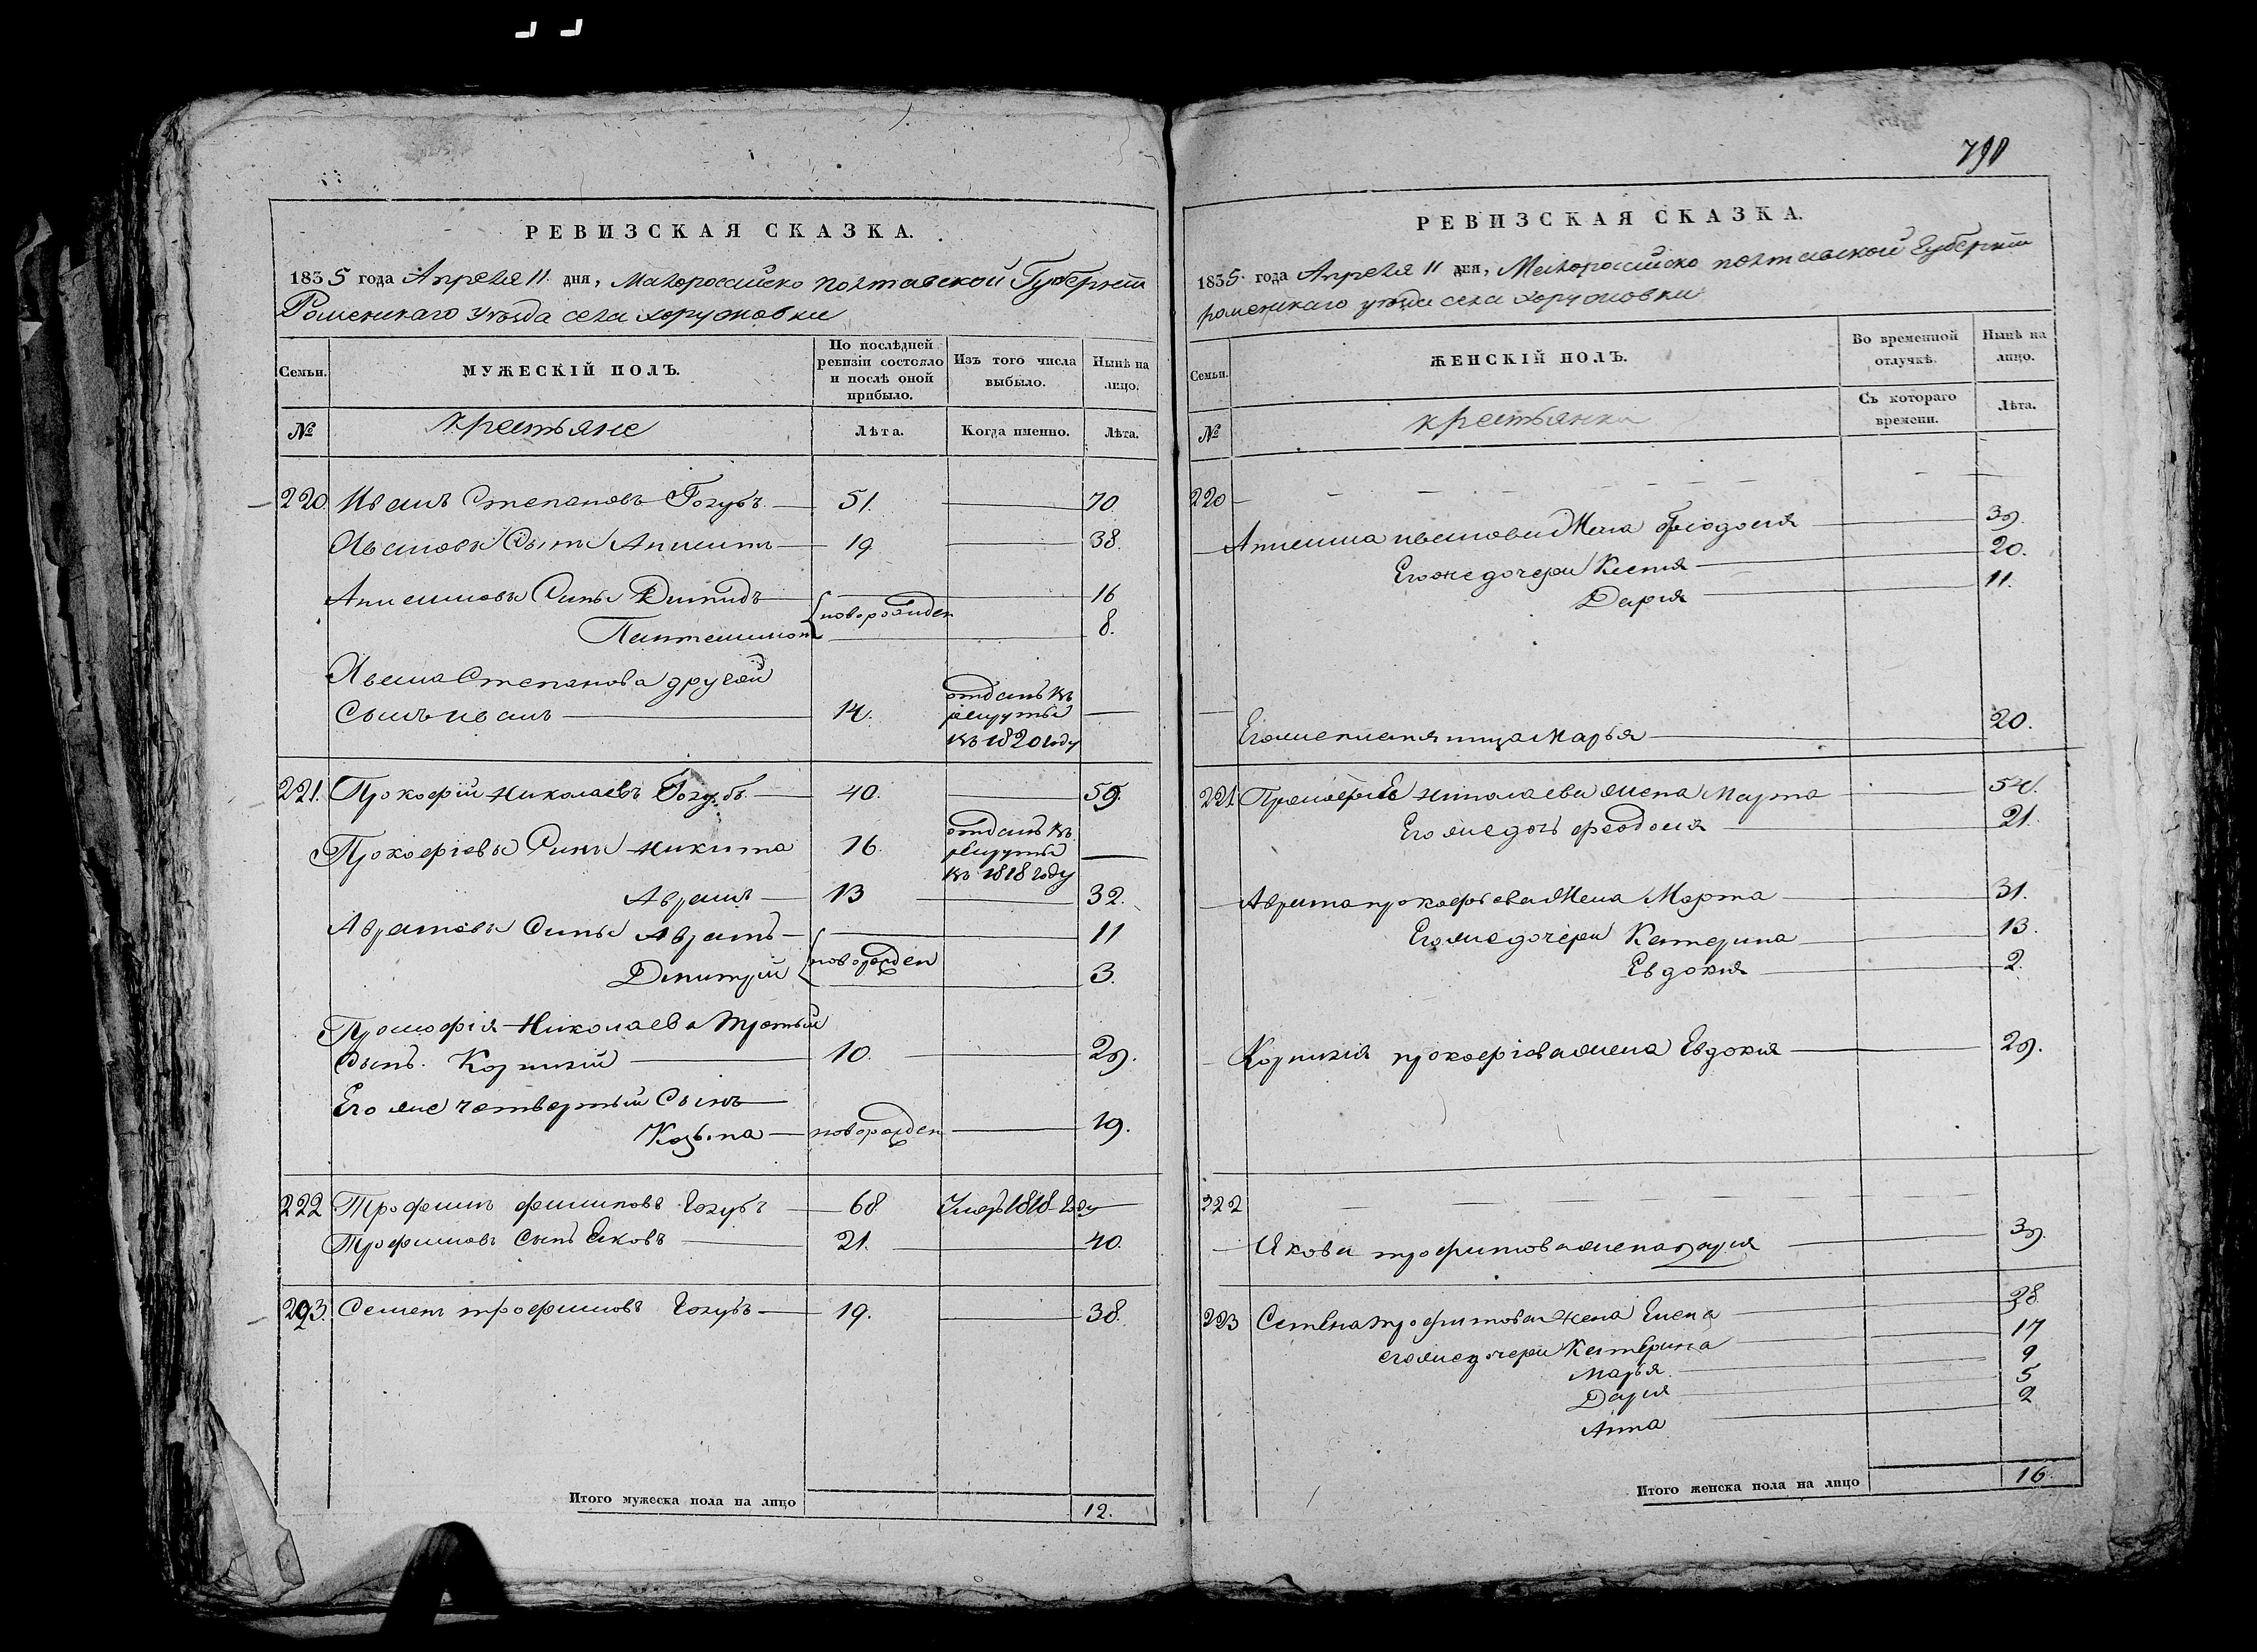 798
РЕВИЗСКАЯ СКАЗКА.
1835 года Апреля 11 дня, Малоросийско полтавской Губернии
Роменскаго Уезда села хоружовки
Семьи. МУЖЕСКІЙ ПОЛЪ. По послѣдней ревизіи состояло и послѣ оной прибыло. Изъ того числа выбыло. Нынѣ на лицо.
№ крестьяне Лѣта. Когда именно. Лѣта.
220. Иванъ Степановъ Голубъ 51. 70.
Ивановъ Сынъ 19 38.
Сины Димидъ 16
новорожден
8.
Ивана Степанова другой
Сынъ иванъ 14. отданъ въ рекруты въ 1820 году
221. Прокофій Николаевъ Голубъ 40. 59.
Прокофіевы Сины Никита 16 отданъ въ рекруты въ 1818 году
Аврамъ 13 32.
Аврамовы Сины Аврамъ 11
новорожден
Дмитрій 3.
Прокофія Николаева третый
Сынъ. Корнилій 10. 29.
Его же четвертый Сынъ
Козьма новорожден 19.
222 Трофимъ филиповъ Голубъ 68 Умеръ 1818 году
Трофимовъ Сынъ Яковъ 21. 40.
223. Семенъ трофимовъ Голубъ 19. 38.
Итого мужеска пола на лицо 12.
РЕВИЗСКАЯ СКАЗКА.
1835. года Апреля 11 дня, Малоросийско полтавской Губернии
роменскаго уезда села хоружовки
Семьи. ЖЕНСКІЙ ПОЛЪ. Во временной отлучкѣ. Нынѣ на лицо.
№ крестьянки Съ котораго времени. Лѣта.
220
ивановы Жена феодосия 39.
Его же дочери Ксения 20.
Дария 11.
Марья 20.
221 Прокофия николаева жена Марта 54.
Его же дочь феодосия 21.
Аврама прокофьева Жена Марта 31.
Его же дочери Катерина 13.
Евдокия 2.
Корнилія прокофіева жена Евдокия 29.
222
Якова трофимова жена дария 39.
223 Семена трофимова жена Елена 38
его же дочери Катерина 17
Марья 9
Дария 5
Анна 2
Итого женска пола на лицо 16.